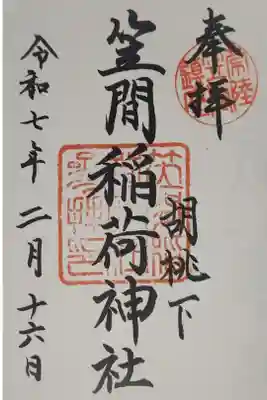 奉拝
胡桃下
笠間稲荷神社
令和七年二月十六日